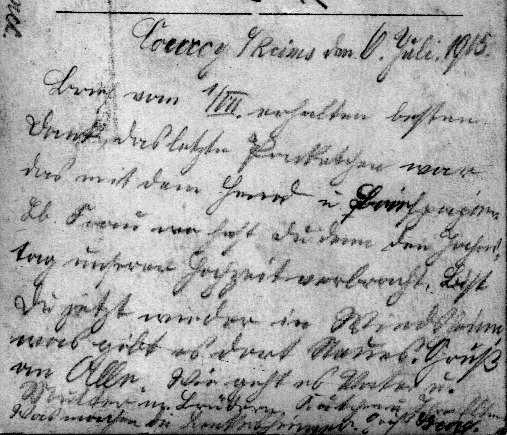 Courcy b/Reims den 6. Juli. 1915.
Brief vom 1/VII. erhalten besten
Dank, das letzte Packetchen war
das mit dem Hemd u Briefpapier
Lb. Frau wo hast du denn den Jahres¬
tag unserer Hochzeit verbracht. Bist
Du jetzt wieder in Windsheim,
was gibt es dort Neues. Gruß
an Alle. Wie geht es Vater u.
Mutter u. Brüdern,
Was machen die